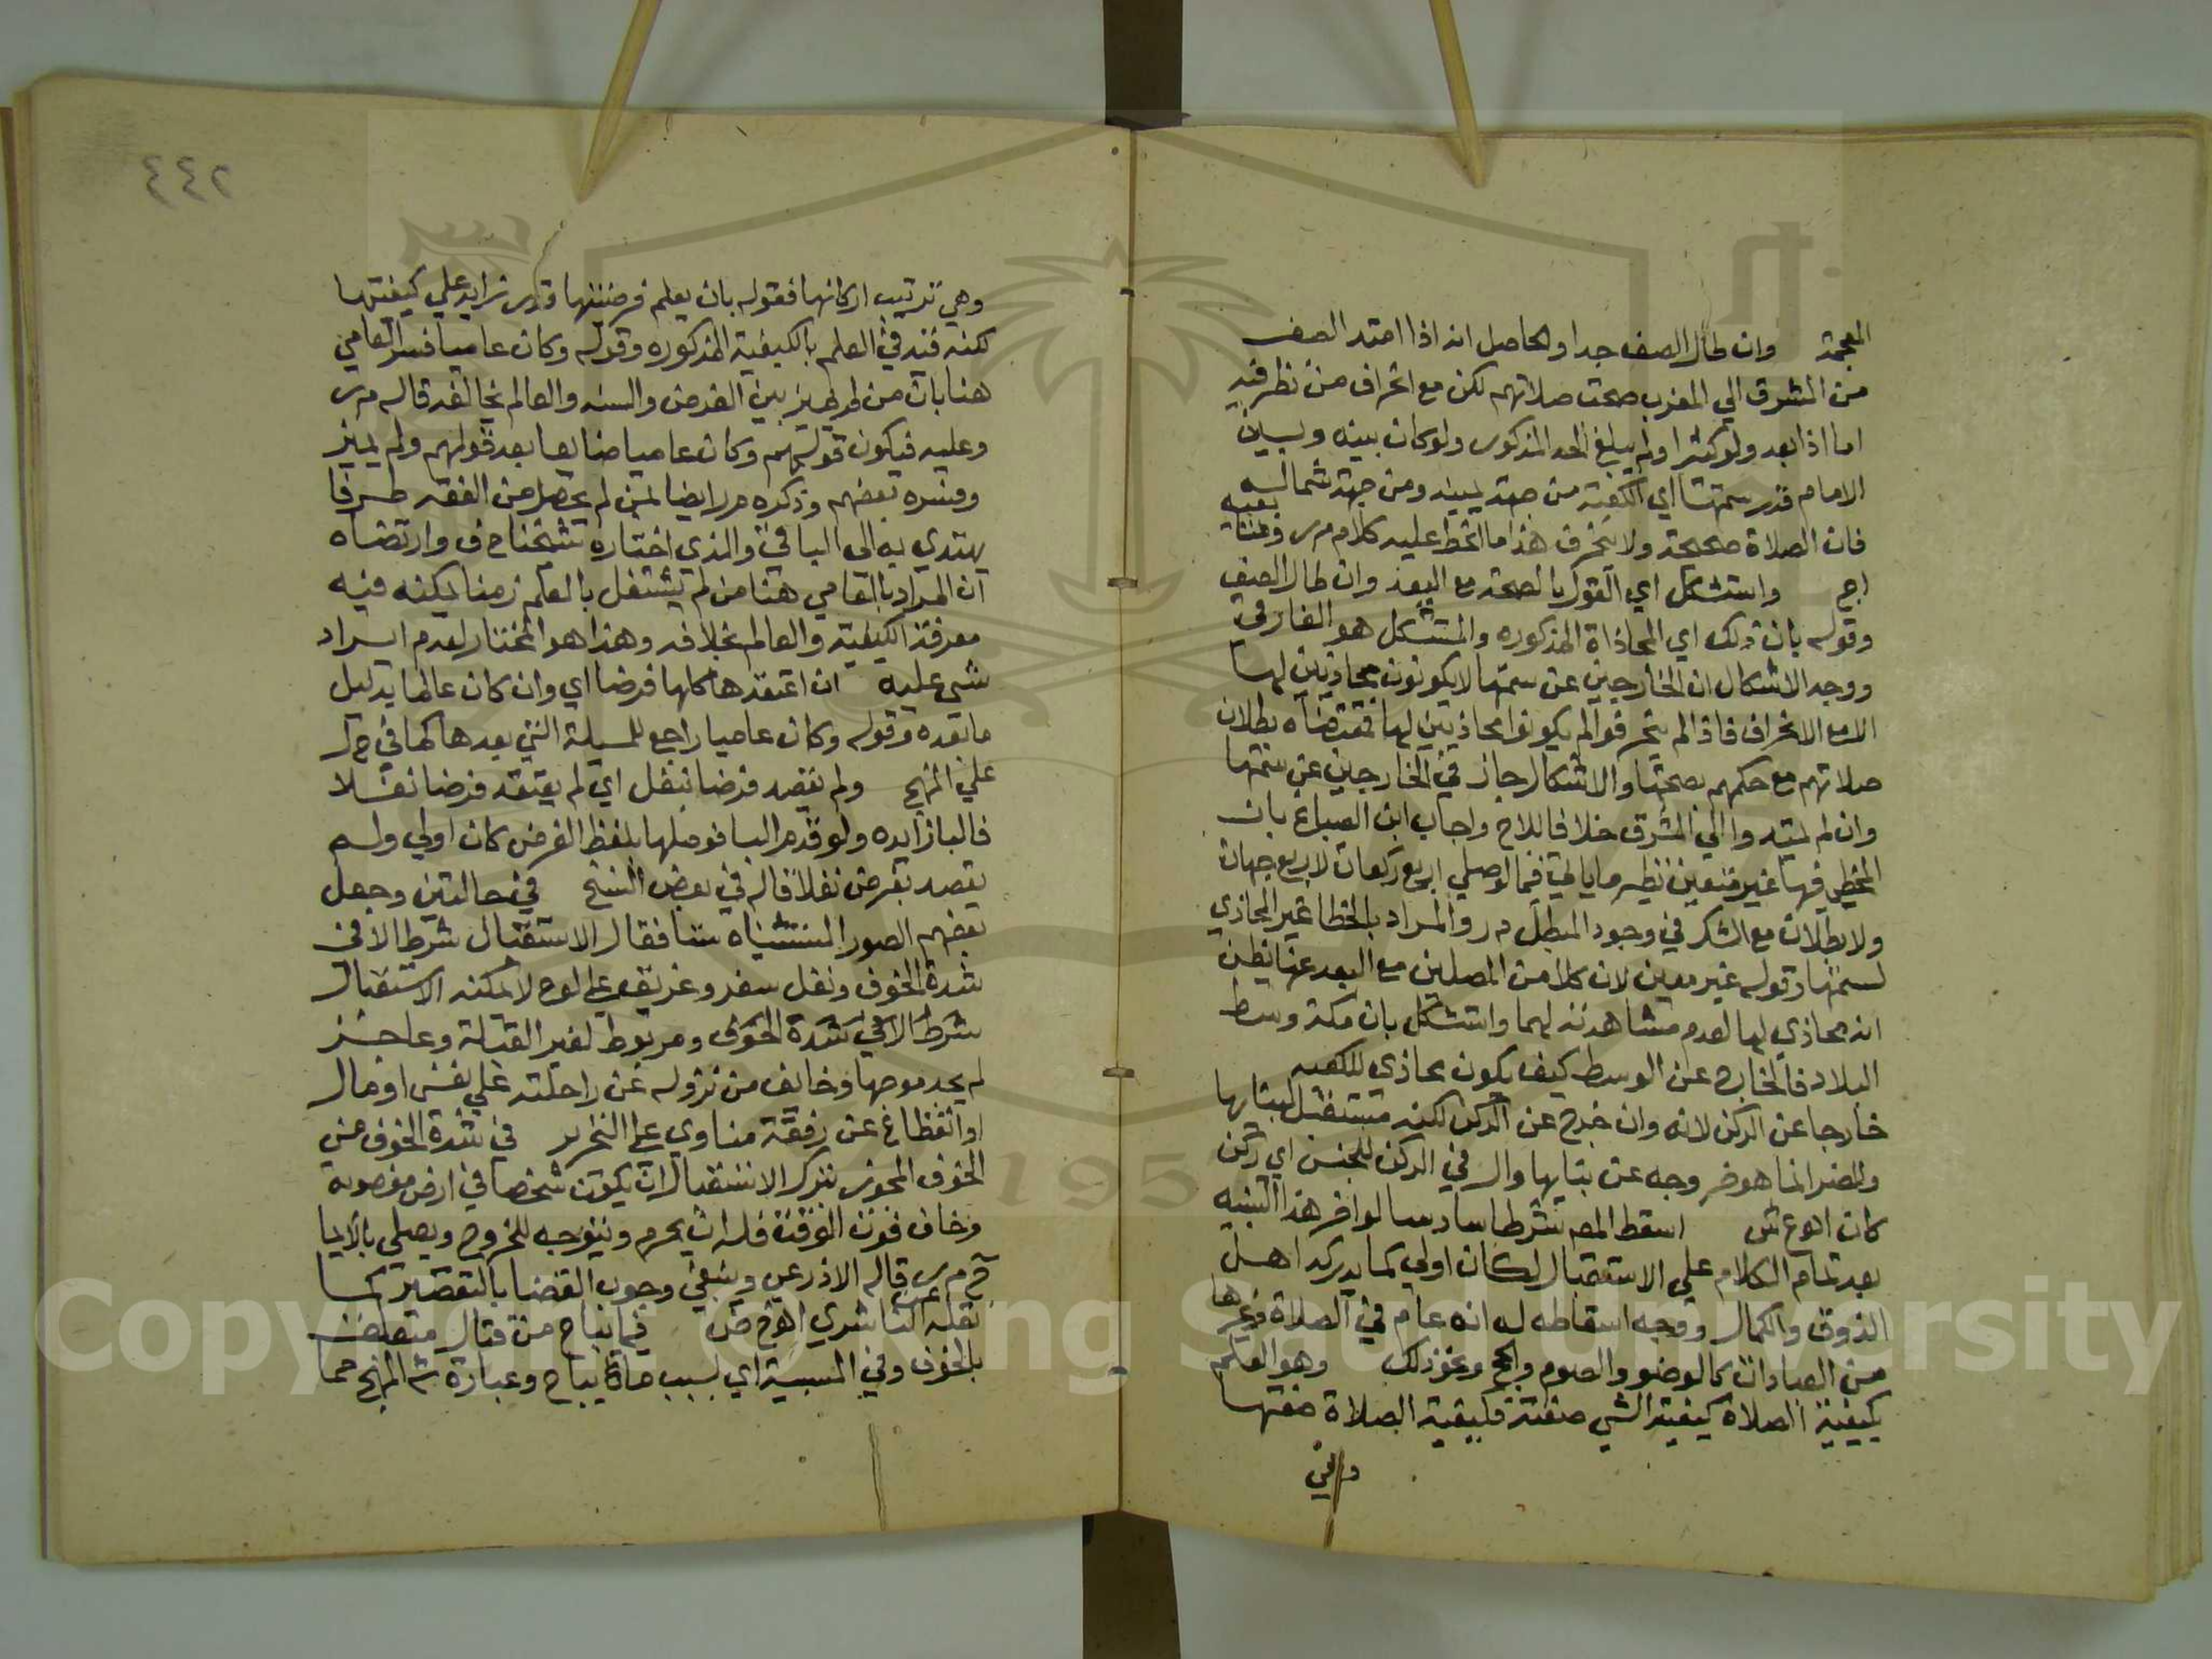 المعجمة وان طال الصف جدا والحاصل انه اذا امتد الصف
من المشرق الي المغرب صحت صلاتهم لكن مع انحراف من نظر فيه
اما اذا بعد ولو كثيرا ولم يبلغ الحد المذكور ولو كان بينه وبين
الامام قدر سمتها اي الكعبة من جهة يمينه ومن جهة شماله
فان الصلاة صحيحة ولا ينحرف هذا ما انحط عليه كلام م ر
اج واستشكل اي القول بالصحة مع البعد وان طال الصف
وقوله بان ذلك اي المحاذاة المذكوره والمستشكل هو الفارقي
ووجه الاشكال ان الخارجين عن سمتها لا يكونون محاذيين لها
الا مع الانحراف فاذا لم ينحرفوا لم يكونوا محاذيين لها فمقتضاه بطلان
صلاتهم مع حكمهم بصحتها والاشكال جاز في الخارجين عن سمتها
وان لم يمتدوا الي المشرق خلافا للاج واجاب ابن الصباغ بان
المخطي فيها غير متعين نظير ما ياتي فيما لو صلي اربع ركعات لاربع جهات
ولا بطلان مع الشك في وجود المبطل م ر والمراد بالخطا غير المحاذي
لسمتها وقوله غير معين لان كلا من المصلين مع البعد عنها يظن
انه محاذي لها لعدم مشاهدته لها واستشكل بان مكة وسط
البلاد فالخارج عن الوسط كيف يكون محاذي للكعبه
خارجا عن الركن لانه وان خرج عن الركن لكنه مستقبل لبنايها
والمضر انما هو خروجه عن بنايها وال في الركن للجنس اي ركن
كان اه ع ش اسقط المص شرطا سادسا لو اخر هذا التنبيه
بعد تمام الكلام علي الاستقبال لكان اولي كما يدركه اهل
الذوق والكمال ووجه اسقاطه له انه عام في الصلاة وغيرها
من العبادات كالوضو والصوم والحج ونحو ذلك وهو العلم
بكيفية الصلاة كيفية الشي صفته فكيفية الصلاة صفتها
وهي
٤٤٢
وهي ترتيب اركانها فقوله بان يعلم فرضيتها قدر زايد علي كيفيتها
لكنه قيد في العلم بالكيفية المذكوره وقوله وكان عاميا فسر العامي
هنا بان من لم يميز بين الفرض والسنه والعالم بخالفه قاله م ر
وعليه فيكون قولهم وكان عاميا ضايعا بعد قولهم ولم يميز
وفسره بعضهم وذكره م ر ايضا بمن لم يحصل من الفقه طرفا
يهتدي به الي الباقي والذي اختاره شيخنا ح ف وارتضاه
ان المراد بالعامي هنا من لم يشتغل بالعلم زمنا يمكنه فيه
معرفة الكيفية والعالم بخلافه وهذا هو المختار لعدم ايراد
شي عليه ان اعتقدها كلها فرضا اي وان كان عالما بدليل
ما بعده وقوله وكان عاميا راجع للمسيلة التي بعدها كما في ح ل
علي المنهج ولم يقصد فرضا بنفل اي لم يعتقد فرضا نفلا
فالبا زايده ولو قدم البا فوصلها بلفظ الفرض كان اولي ولم
يقصد بفرض نفلا قاله في بعض النسخ في حالتين وجعل
بعضهم الصور المستثناه ستا فقال الاستقبال شرط الا في
شدة الخوف ونفل سفر وغريق علي لوح لا يمكنه الاستقبال
شرط الا في شدة الخوف ومربوط لغير القبلة وعاجز
لم يجد موجها وخايف من نزوله عن راحلته علي نفس او مال
او انقطاع عن رفقة مناوي علي التحرير في شدة الخوف من
الخوف المجوز لترك الاستقبال ان يكون شخصا في ارض مغصوبة
وخاف فوت الوقت فله ان يحرم ويتوجه للخروج ويصلي بالايما
قاله الاذرعي وينبغي وجوب القضا بالتقصير كما
نقله الناشري اه خ ض فيما يباح من قتال متعلق
بالخوف وفي السببية اي بسبب ما يباح وعبارة ش المنهج مما